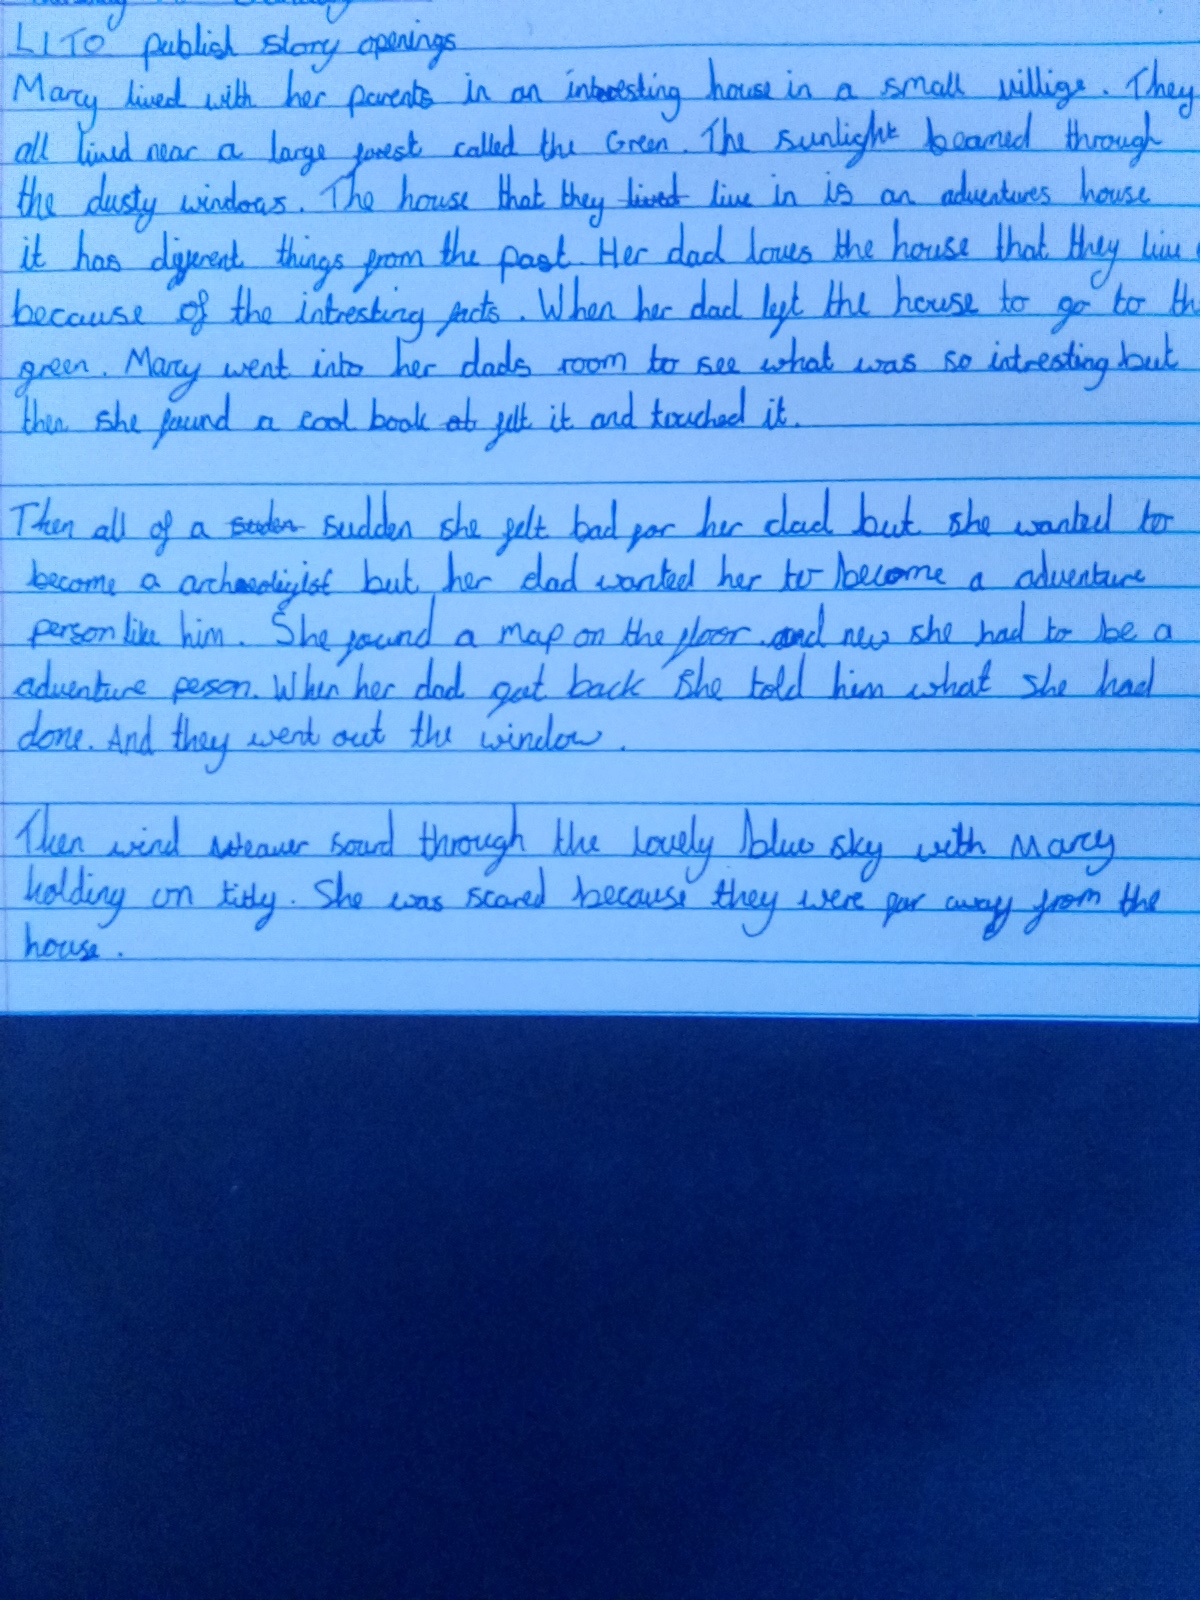 LITO publish story openings
Marcy lived with her parents in an interesting house in a small villige. They
all lived near a large forest called the Green. The sunlight beamed through
the dusty windows. The house that they lived live in is an adventures house
it has different things from the past. Her dad loves the house that they live
because of the intresting facts. When her dad left the house to go to th
green. Marcy went into her dads room to see what was so intresting but
then she found a cool book at felt it and touched it.
Then all of a suden sudden she felt bad for her dad but she wanted to
become a archeoligist but her dad wanted her to become a adventure
person like him. She found a map on the floor and new she had to be a
adventure person. When her dad got back she told him what she had
done. And they went out the window.
Then wind weaver sourd through the lovely blue sky with Marcy
holding on titly. She was scared because they were far away from the
house.